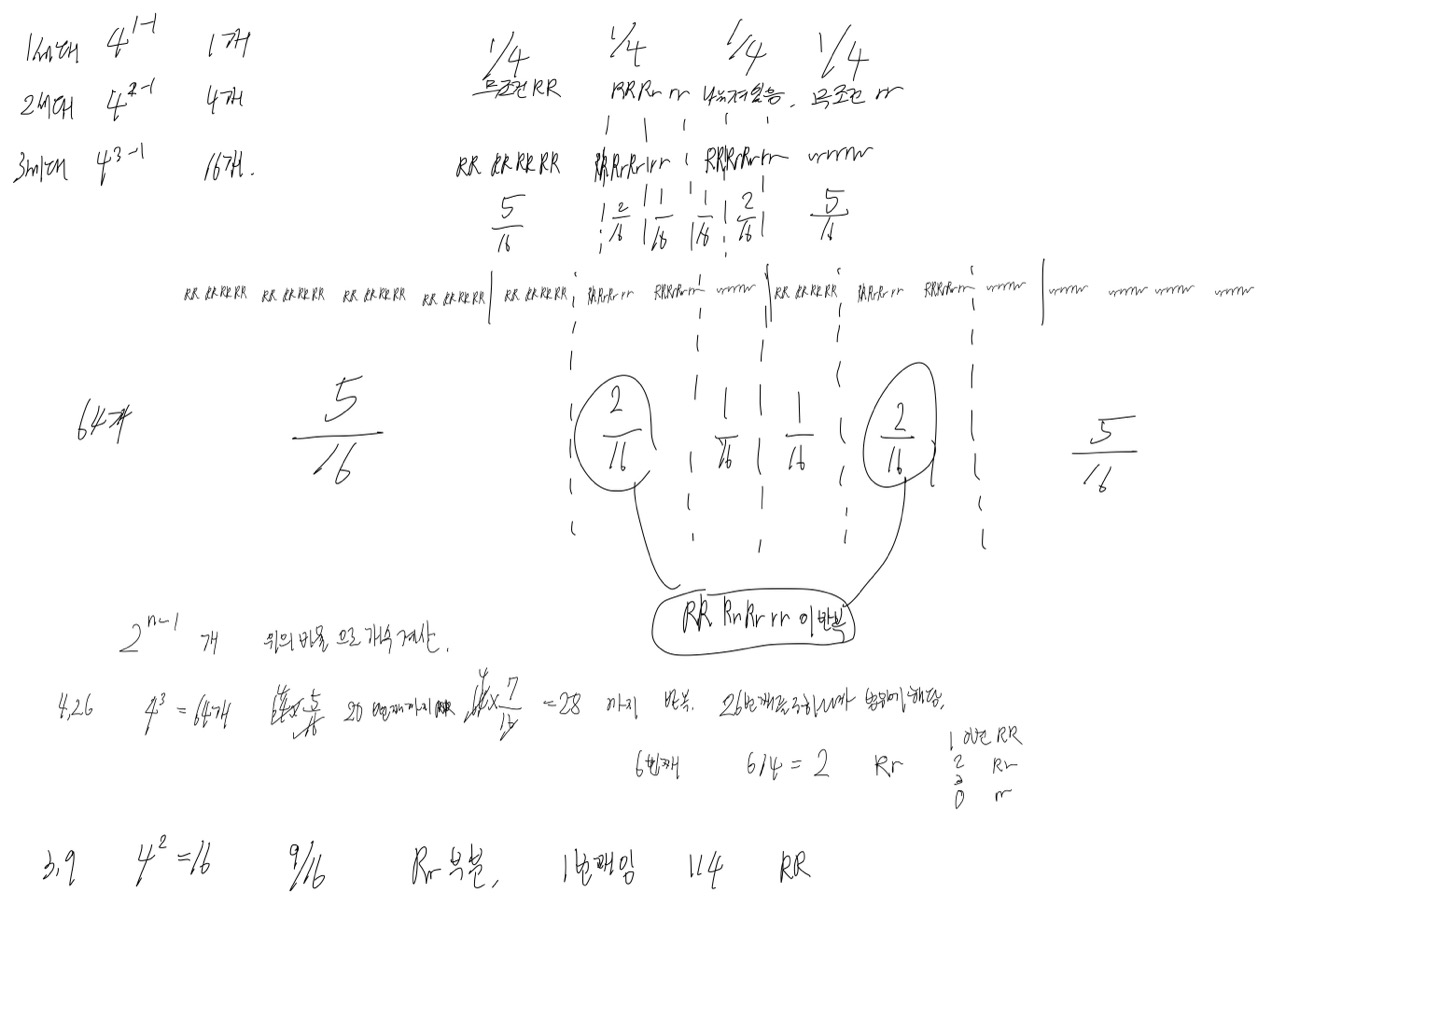 1세대 4^{1-1} 1개
2세대 4^{2-1} 4개
3세대 4^{3-1} 16개.
1/4 1/4 1/4 1/4
무조건 RR RRRr rr 나눠져있음. 무조건 rr
RR RRRRRR RRRrRrrr RRRrRrrr rrrrrrrr
5/16 2/16 1/16 1/16 2/16 5/16
RR RRRRRR RR RRRRRR RR RRRRRR RR RRRRRR RR RRRRRR RRRrRrrr RRRrRrrr rrrrrrrr RR RRRRRR RRRrRrrr RRRrRrrr rrrrrrrr rrrrrrrr rrrrrrrr rrrrrrrr rrrrrrrr
64개 5/16 2/16 1/16 1/16 2/16 5/16
RR RrRr rr 이 반복
2^{n-1} 개 위의 비율으로 개수 계산.
4,26 4^3 = 64개 64×5/16 20번째까지 RR 64×7/16 =28 까지 반복. 26번째를 구하니까 해당.
6번째 6%4 = 2 Rr
1 이면 RR
2 Rr
3
0 rr
3,9 4^2 =16 9/16 Rr 부분, 1번째임 1%4 RR